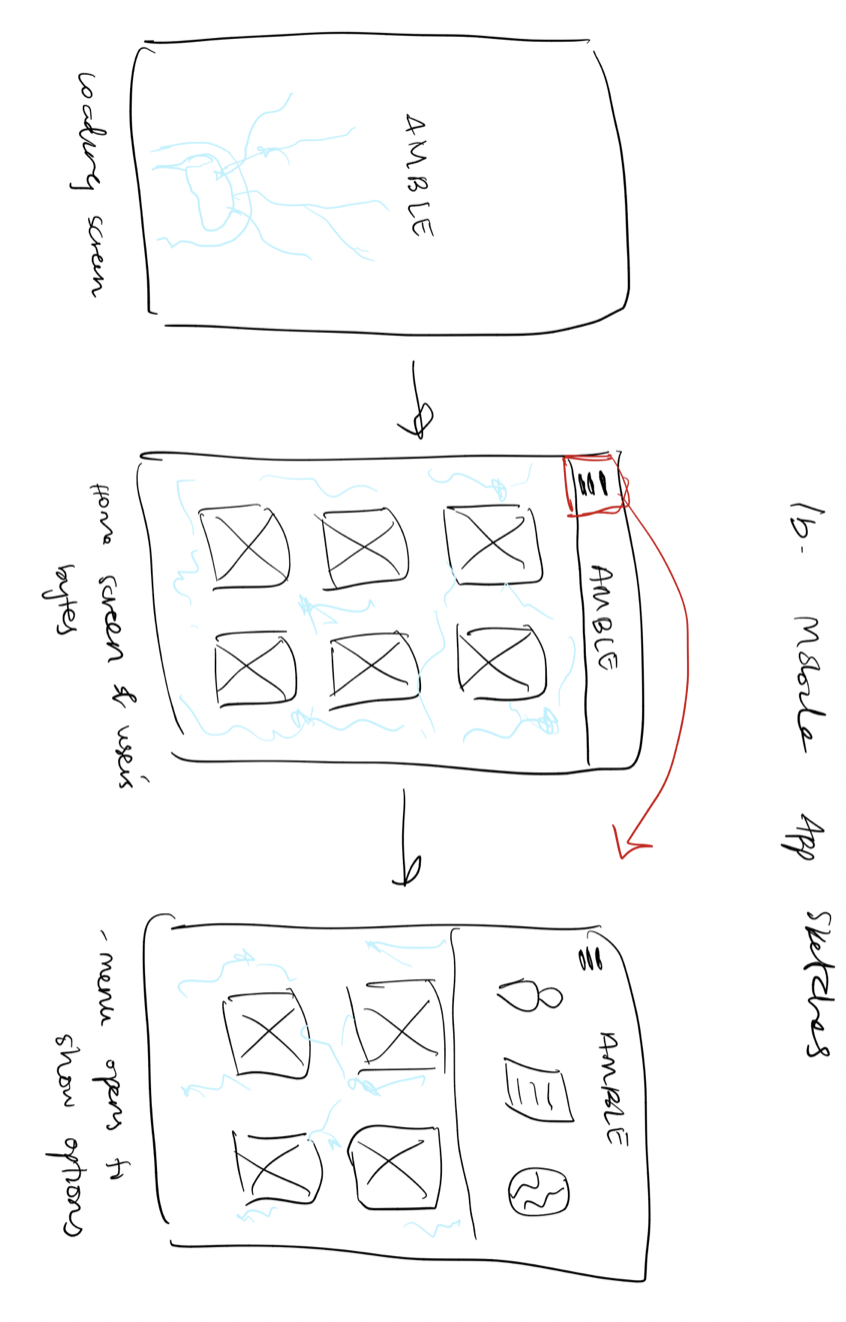 1b. Mobile App Sketches
AMBLE
Loading screen
AMBLE
Home screen of user's
bytes
AMBLE
- menu opens to
show options